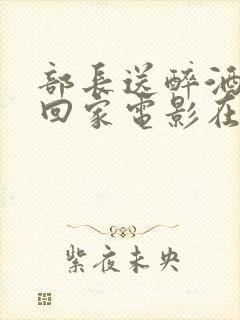 部长送醉酒
回家电影在
紫夜未央